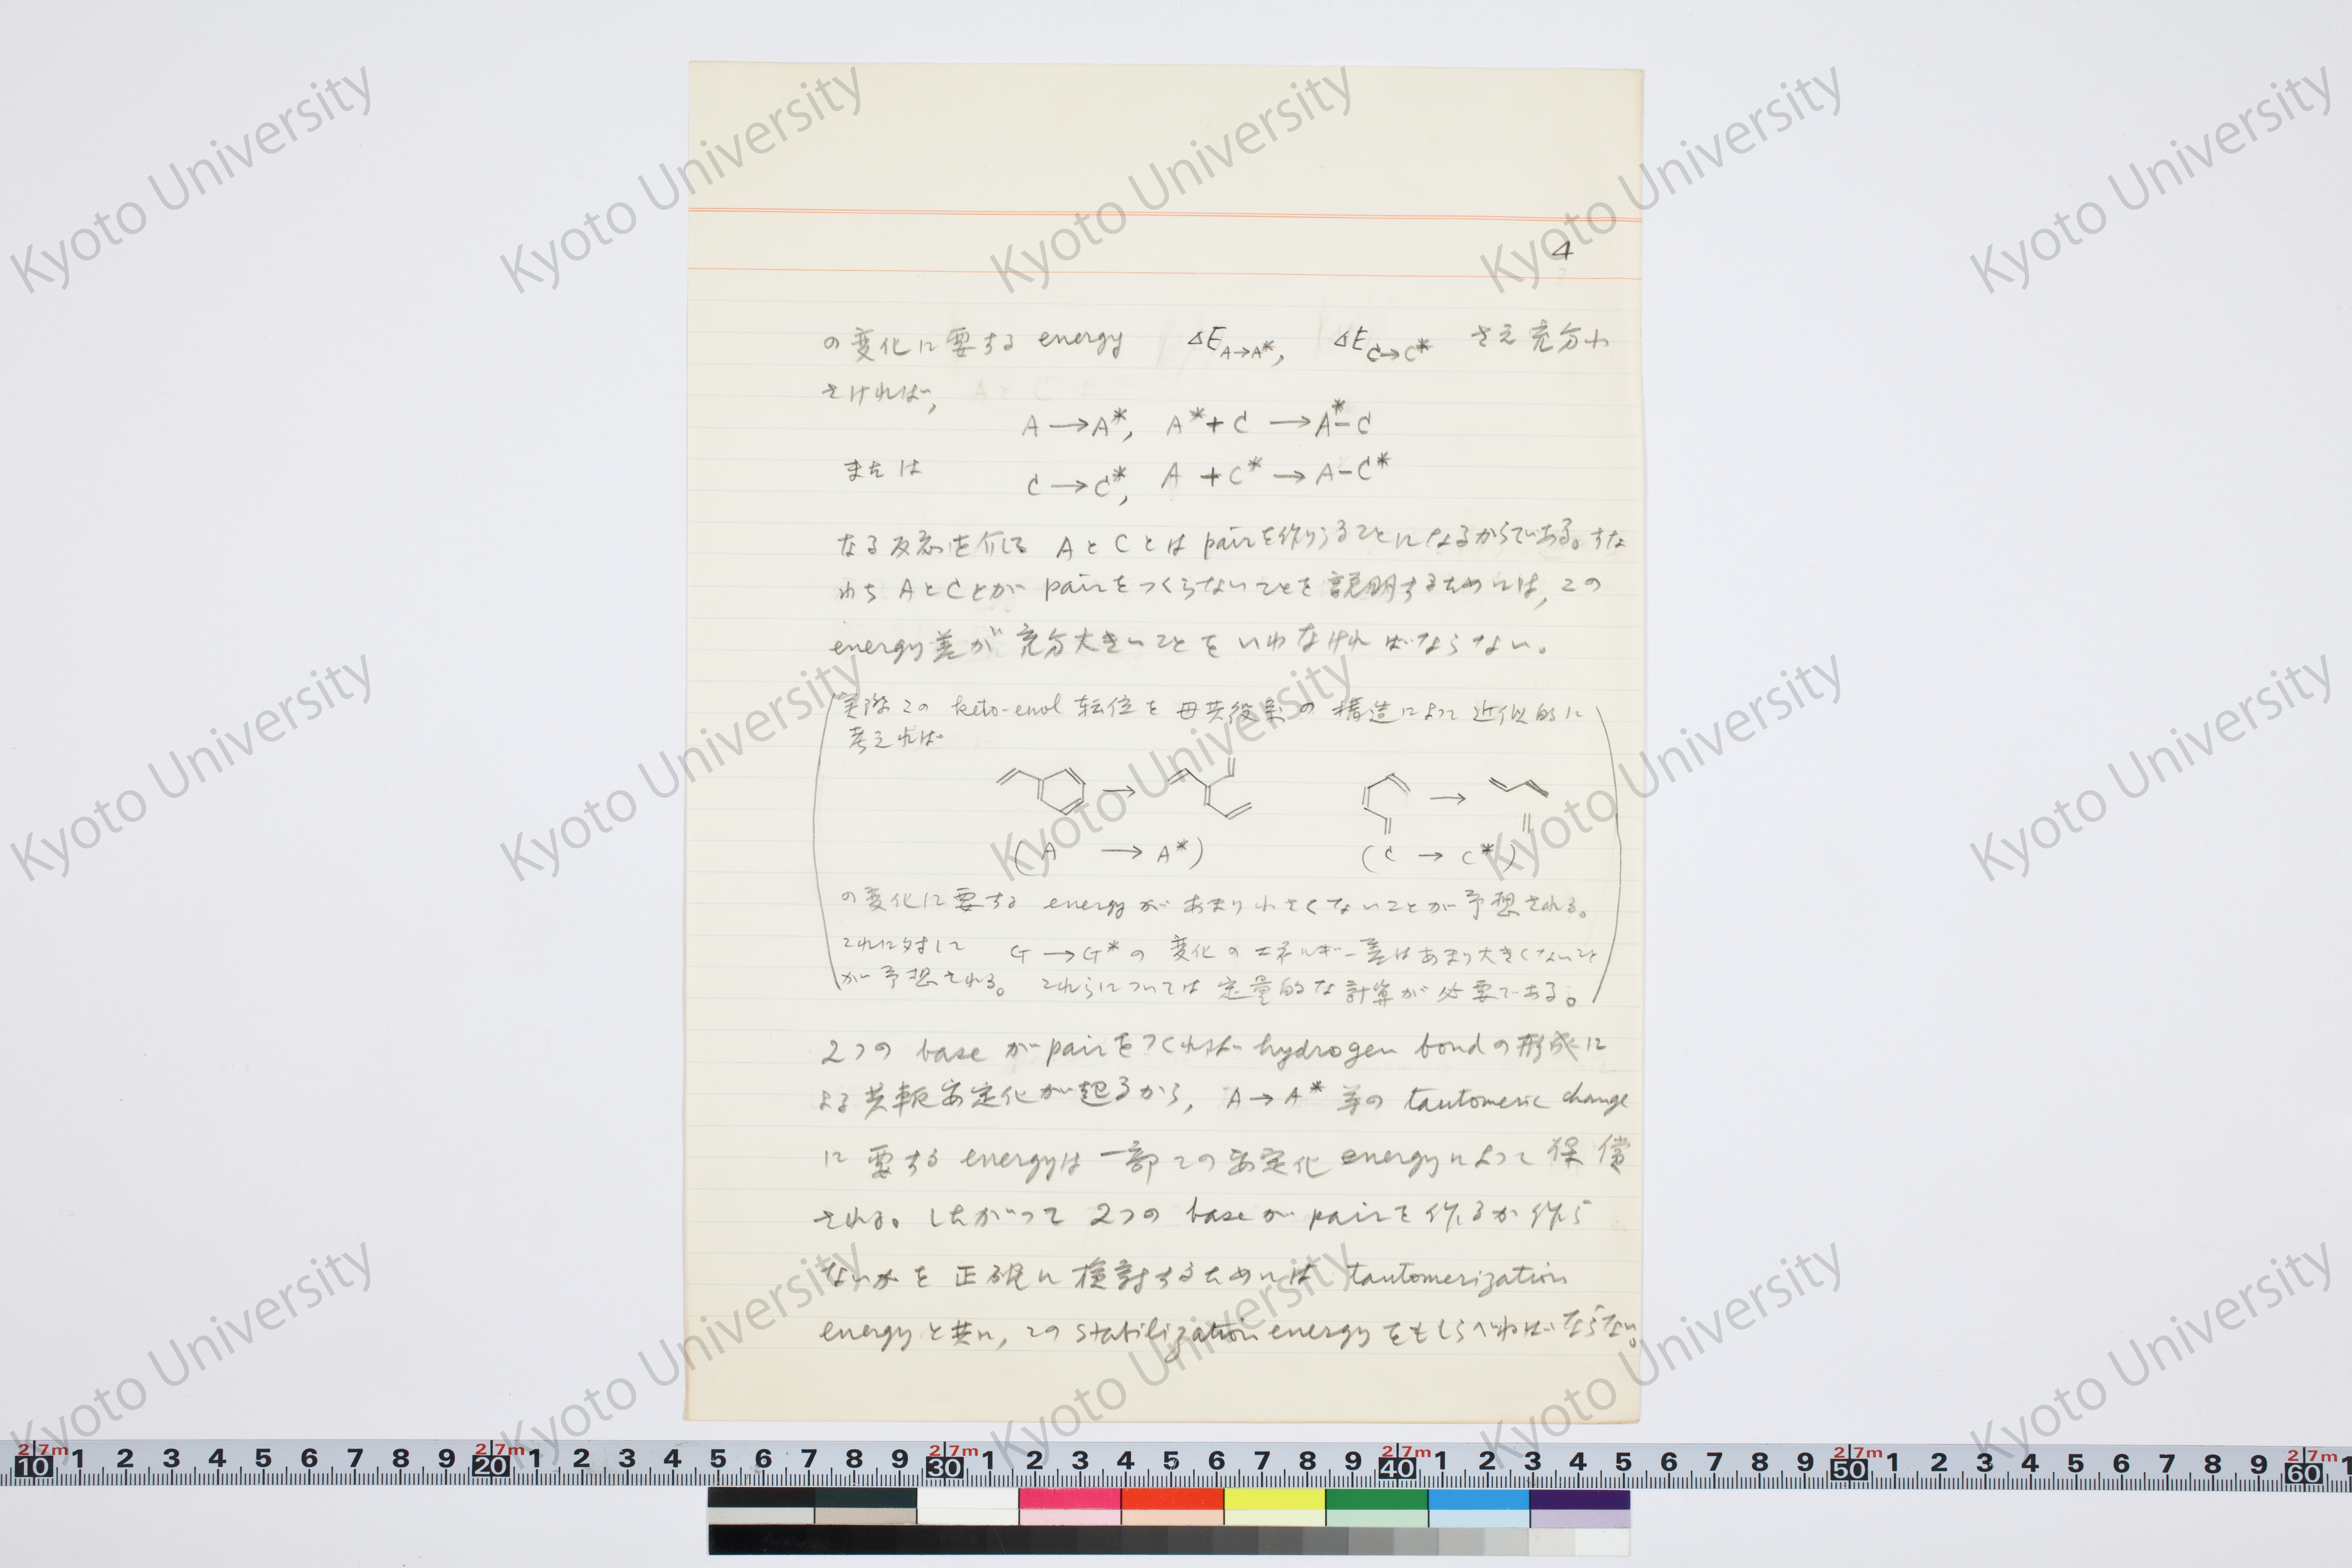 4
の変化に要する energy ΔE A→A*, ΔE C→C* さえ充分小
さければ,
A → A*, A* + C → A*-C
または
C → C*, A + C* → A-C*
なる反応を介して A と C とは pair を作りうることになるからである。すな
わち A と C とが pair をつくらないことを説明するためには, この
energy 差が充分大きいことをいわなければならない。
実際この keto-enol 転位を母共役系の構造によって近似的に
考えれば
(A → A*) (C → C*)
の変化に要する energy があまり小さくないことが予想される。
これに対して G → G* の変化のエネルギー差はあまり大きくないこと
が予想される。これらについては定量的な計算が必要である。
2つの base が pair をつくれば hydrogen bond の形成に
よる共軛安定化が起るから, A → A* 等の tautomeric change
に要する energy は一部この安定化 energy によって保償
される。したがって 2つの base が pair を作るか作ら
ないかを正確に検討するためには tautomerization
energy と共に, この stabilization energy をもしらべねばならない。
Kyoto University